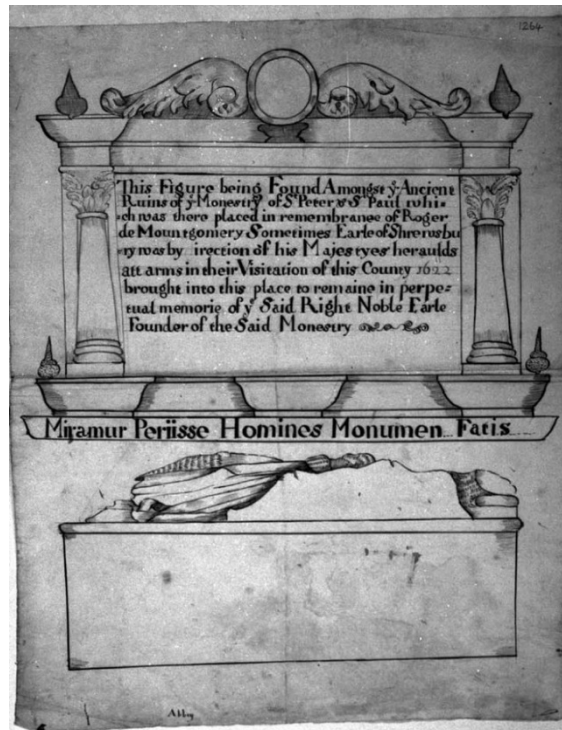 1264
This Figure being Found Amongst yͤ Ancient
Ruins of yͤ Monestry of Sͭ Peter & Sͭ Paul whi-
ch was there placed in remembrance of Roger
de Mountgomery Sometimes Earle of Shrewsbu
ry was by irection of his Majestyes heraulds
att arms in their Visitation of this County 1622
brought into this place to remaine in perpe=
tual memorie of yͤ Said Right Noble Earle
Founder of the Said Monestry
Miramur Periisse Homines Monumen Fatis
Abby